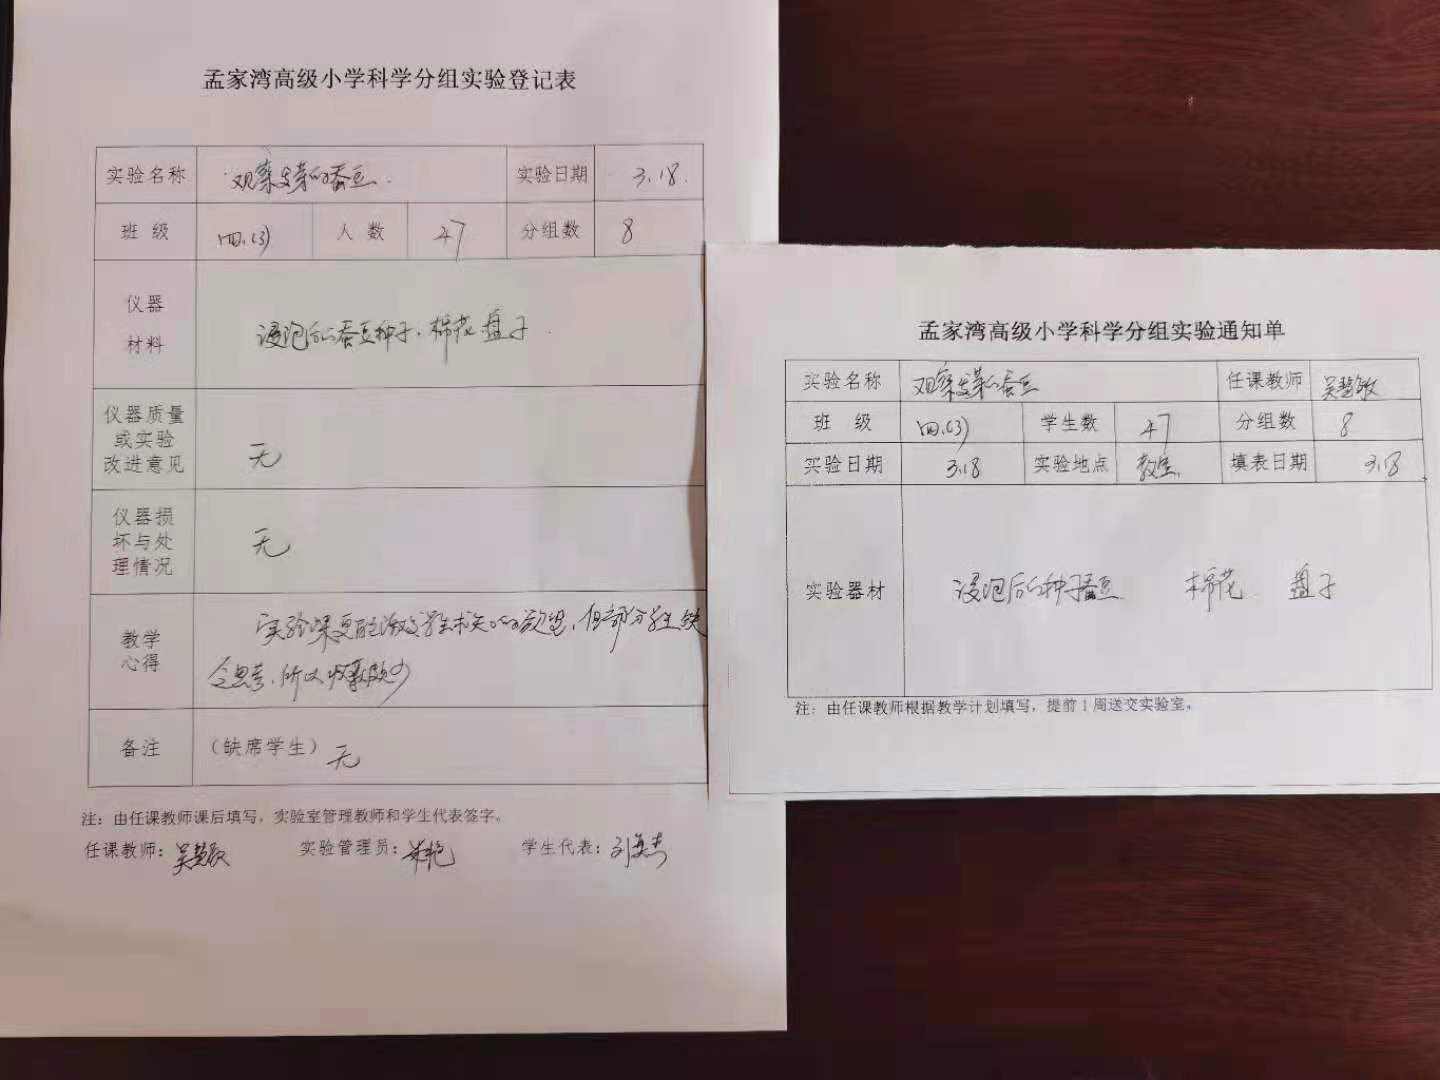 孟家湾高级小学科学分组实验登记表
实验名称 观察发芽的蚕豆. 实验日期 3.18.
班 级 四.(3) 人 数 47 分组数 8
仪器
材料
浸泡后的蚕豆种子. 棉花 盘子.
仪器质量
或实验
改进意见
无
仪器损
坏与处
理情况
无
教学
心得
实验课更能激发学生求知的欲望, 但部分学生缺
乏思考, 所以收获较少
备注 (缺席学生) 无
注：由任课教师课后填写，实验室管理教师和学生代表签字。
任课教师：吴慧敏 实验管理员： 学生代表：
孟家湾高级小学科学分组实验通知单
实验名称 观察发芽的蚕豆 任课教师 吴慧敏
班 级 四.(3) 学生数 47 分组数 8
实验日期 3.18 实验地点 教室. 填表日期 3.18
实验器材 浸泡后的种子蚕豆. 棉花. 盘子
注：由任课教师根据教学计划填写，提前1周送交实验室。